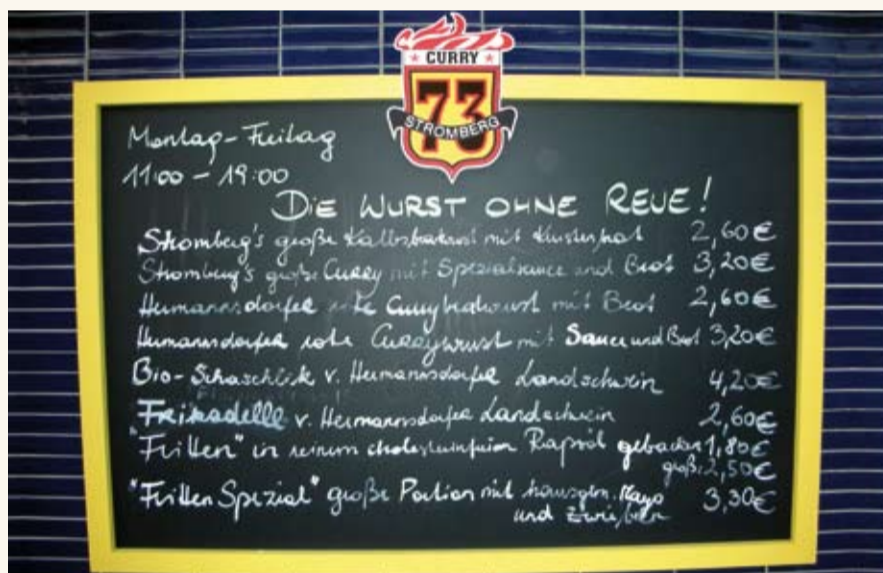 CURRY
73
STROMBERG
Montag-Freitag
11:00 - 19:00
DIE WURST OHNE REUE!
Stromberg's große Kalbsbratwurst mit Krustenbrot 2,60€
Stromberg's große Curry mit Spezialsauce und Brot 3,20€
Hermannsdorfer rote Currybratwurst mit Brot 2,60€
Hermannsdorfer rote Currywurst mit Sauce und Brot 3,20€
Bio-Schaschlik v. Hermannsdorfer Landschwein 4,20€
Frikadelle v. Hermannsdorfer Landschwein 2,60€
"Fritten" in reinem cholesterinfreien Rapsöl gebacken 1,80€
große 2,50€
"Fritten Spezial" große Portion mit hausgem. Mayo 3,30€
und Zwiebeln